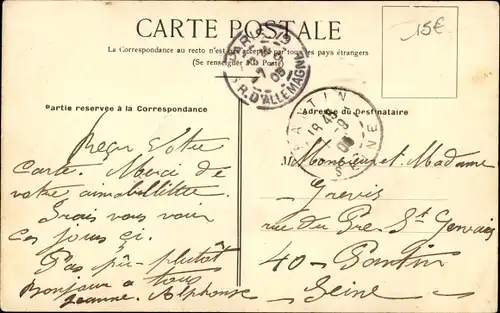 CARTE POSTALE
15€
La Correspondance au recto n'est pas acceptée par tous les pays étrangers
(Se renseigner à la Poste)
PARIS 19
R. D'ALLEMAGNE
Partie reservée à la Correspondance
Adresse du Destinataire
PANTIN
SEINE
Reçu Votre
Carte. Merci de
votre
Irais vous voir
ces jours ci.
Pas pû plutôt
Bonjour a tous
Jeanne. Alphonse
Monsieur et Madame
Grevis
rue du Pre St Gervais
40 - Pantin
Seine